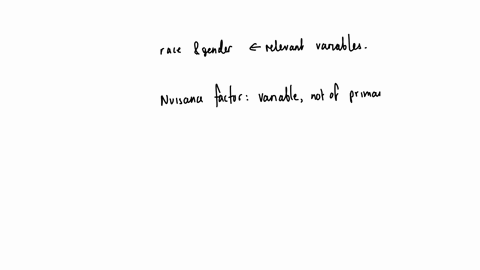 race & gender ← relevant variables.
Nuisance factor: variable, not of primar